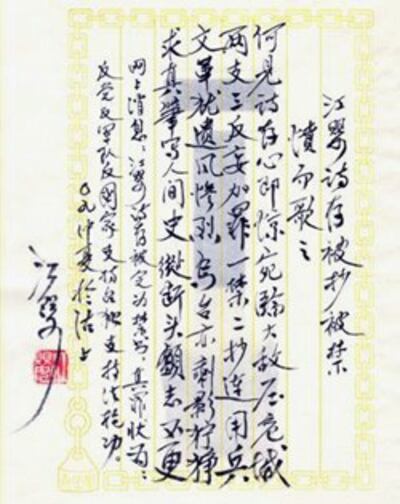 江婴诗存被抄被禁
愤而歌之
何见诗存心即惊宛临大敌压危城
两支三反妄加罪一禁二抄连用兵
文革犹遗风惨烈乌台亦剩影狞狰
求真笔写人间史纵断头颅志不更
网上消息：江婴诗存被定为禁书，其罪状为：
反党反军队反国家支持台独支持法轮功。
〇九仲夏於沽上
江婴